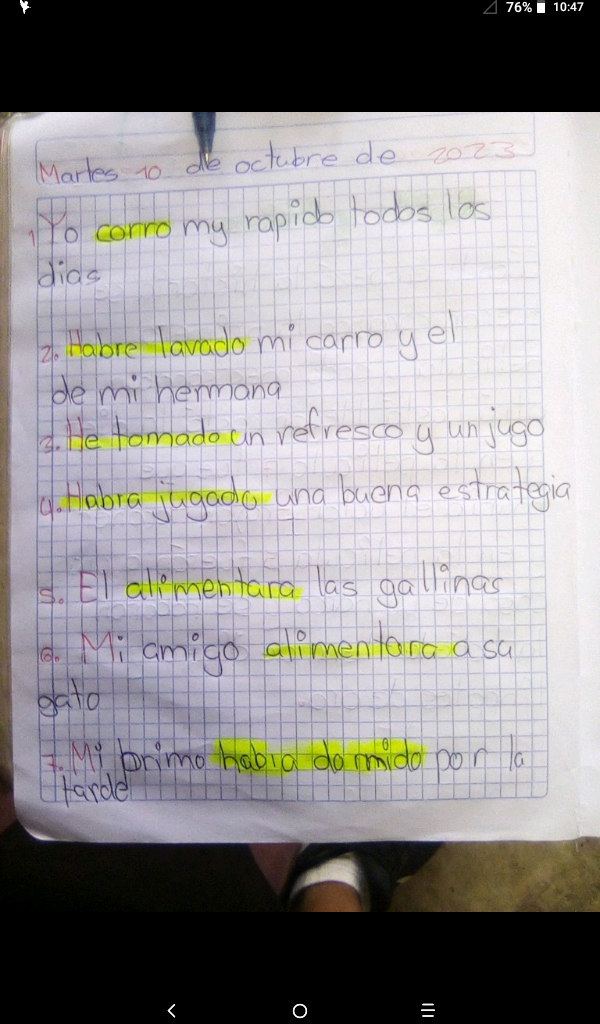 76% 10:47
Martes 10 de octubre de 2023
1 Yo corro my rapido todos los
dias
2. Habre lavado mi carro y el
de mi hermana
3. He tomado un refresco y un jugo
4. Habra jugado una buena estrategia
5. El alimentara las gallinas
6. Mi amigo alimentara a su
gato
7. Mi primo habia domido por la
tarde